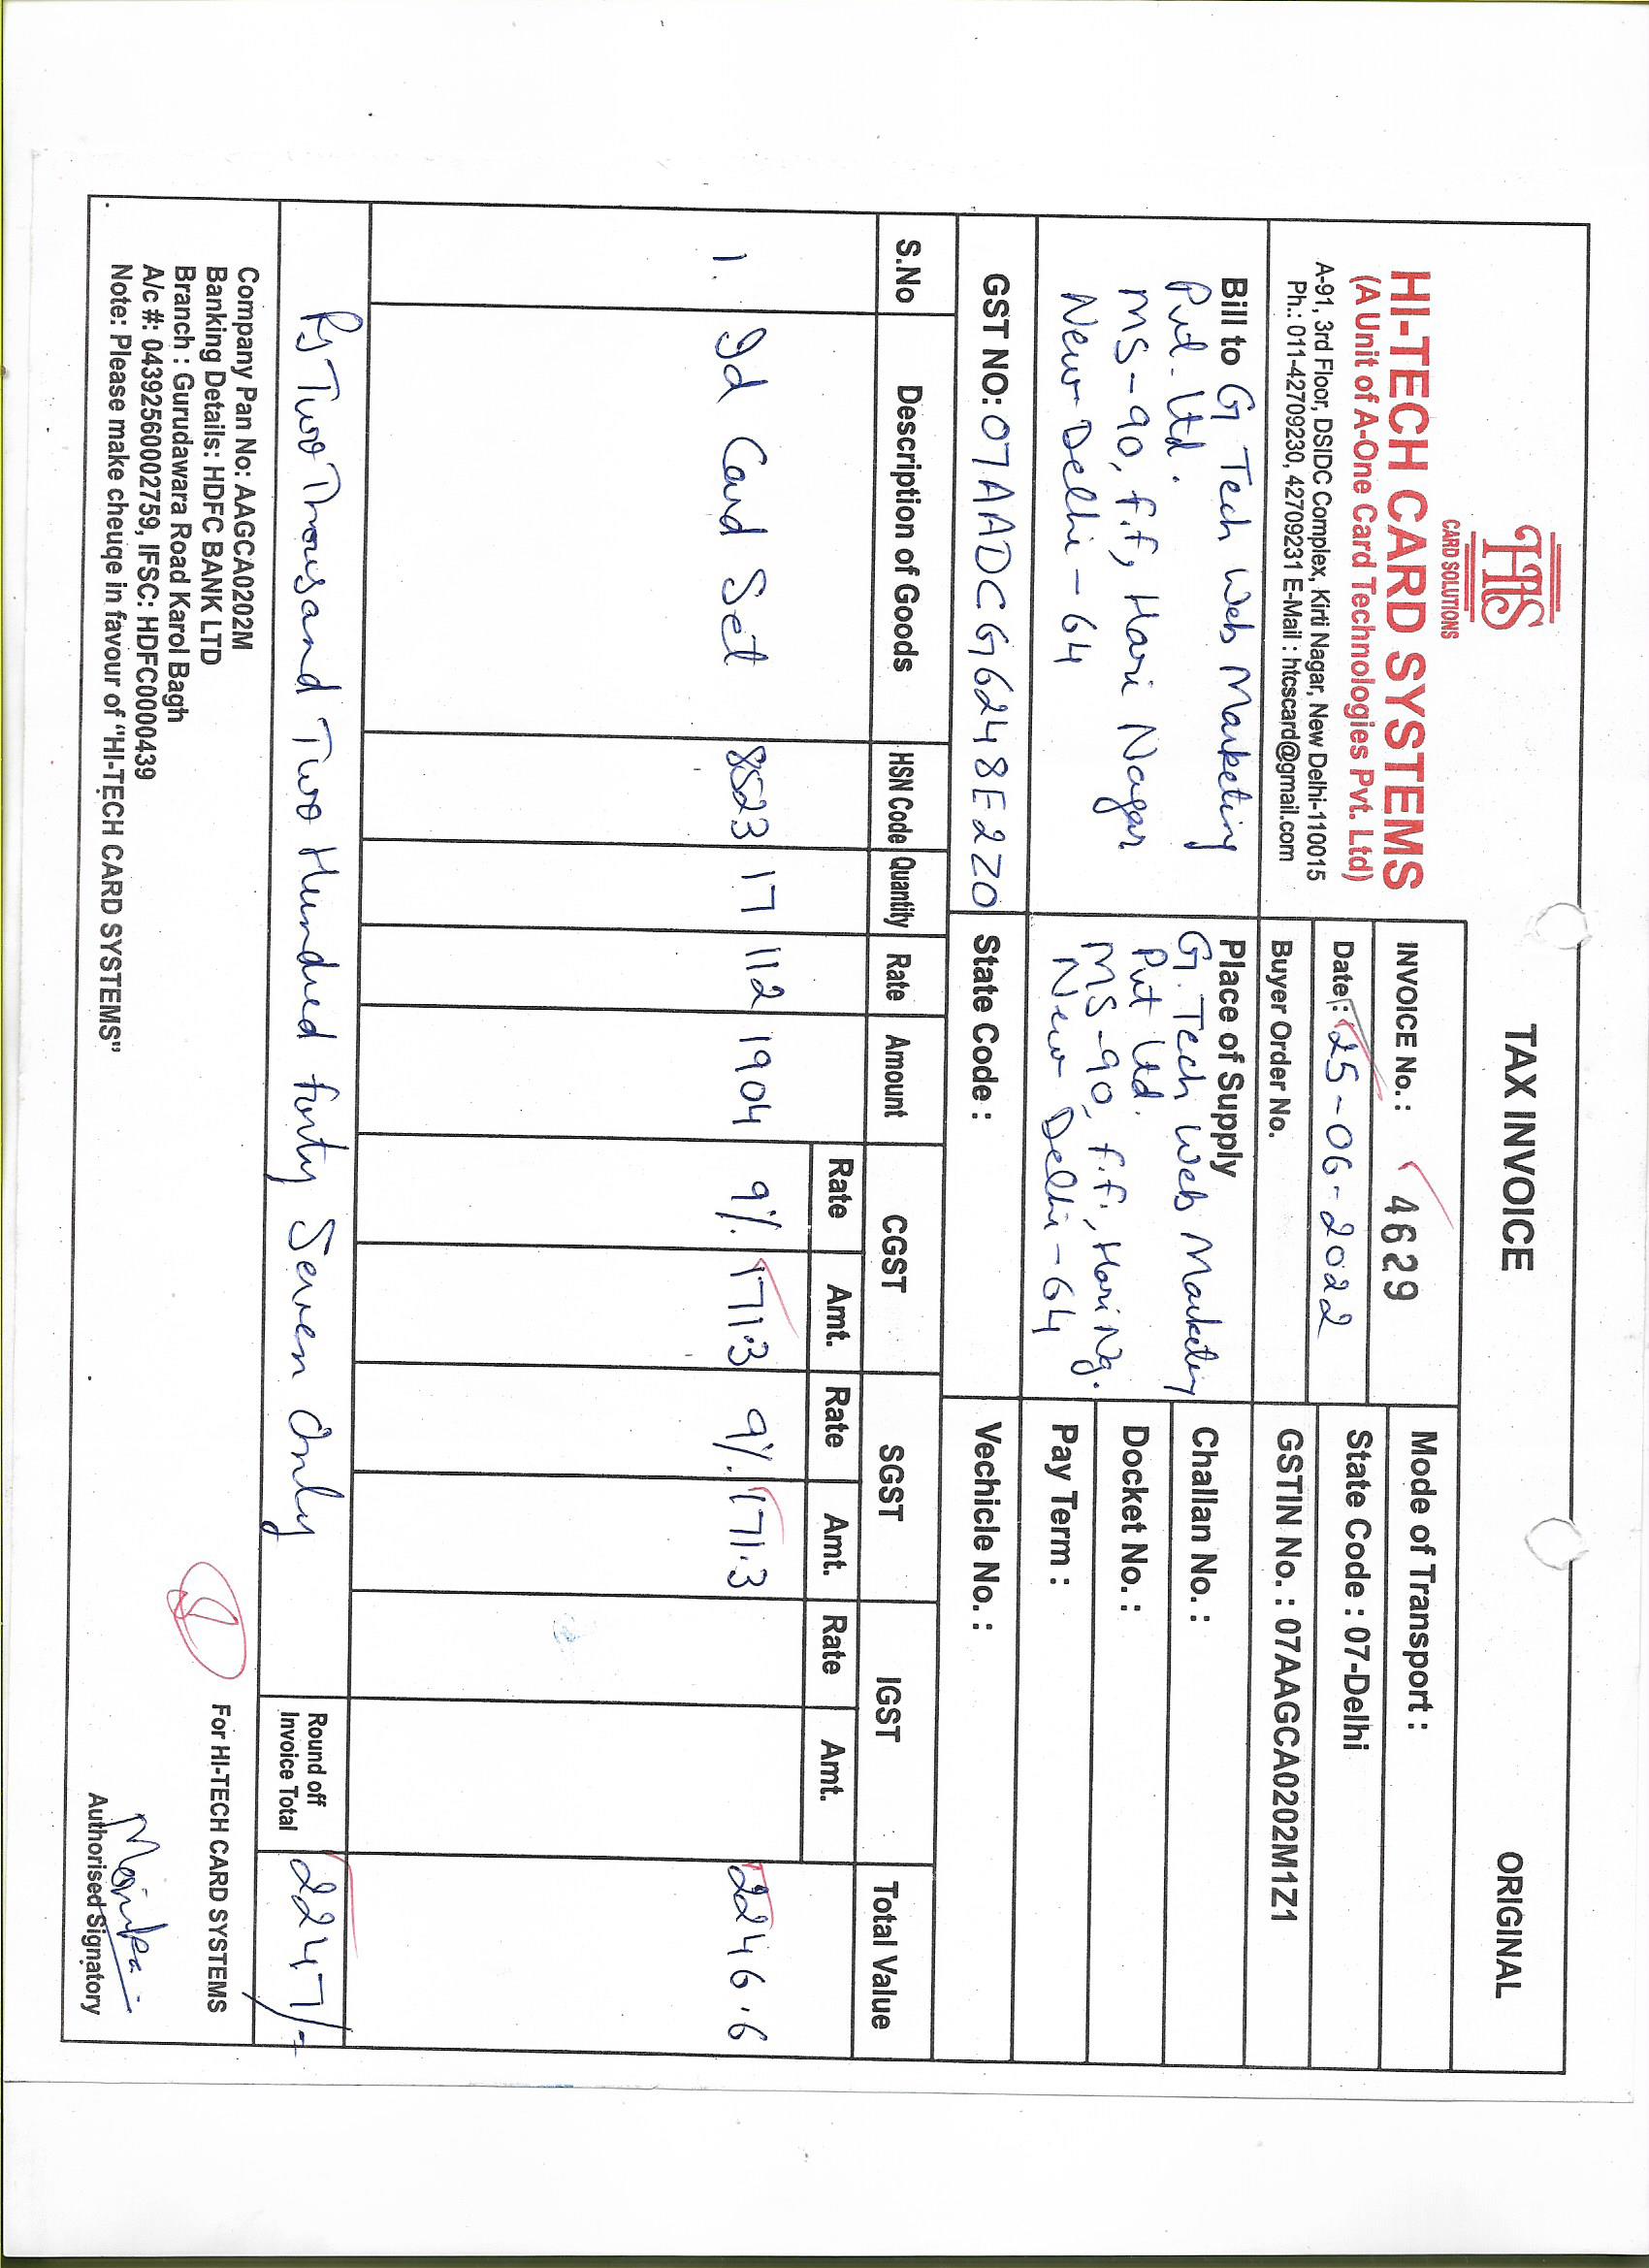 TAX INVOICE
ORIGINAL
HTS
CARD SOLUTIONS
HI-TECH CARD SYSTEMS
(A Unit of A-One Card Technologies Pvt. Ltd)
A-91, 3rd Floor, DSIDC Complex, Kirti Nagar, New Delhi-110015
Ph.: 011-42709230, 42709231 E-Mail : htcscard@gmail.com
INVOICE No. : 4629
Date : 25-06-2022
Buyer Order No.
Mode of Transport :
State Code : 07-Delhi
GSTIN No. : 07AAGCA0202M1Z1
Bill to G Tech Web Marketing
Pvt. Ltd.
MS-90, F.F, Hari Nagar
New Delhi-64
Place of Supply
G. Tech Web Marketing
Pvt Ltd.
MS-90, F.F., Hari Ng.
New Delhi-64
Challan No. :
Docket No. :
Pay Term :
GST NO: 07AADCG6248E2Z0
State Code :
Vechicle No. :
S.No Description of Goods HSN Code Quantity Rate Amount CGST SGST IGST Total Value
Rate Amt. Rate Amt. Rate Amt.
1. Id Card Set 8523 17 112 1904 9% 171.3 9% 171.3 2246.6
Rs Two Thousand Two Hundred forty Seven Only
Round off
Invoice Total
2247/-
Company Pan No: AAGCA0202M
Banking Details: HDFC BANK LTD
Branch : Gurudawara Road Karol Bagh
A/c #: 04392560002759, IFSC: HDFC0000439
Note: Please make cheuqe in favour of "HI-TECH CARD SYSTEMS"
For HI-TECH CARD SYSTEMS
Authorised Signatory